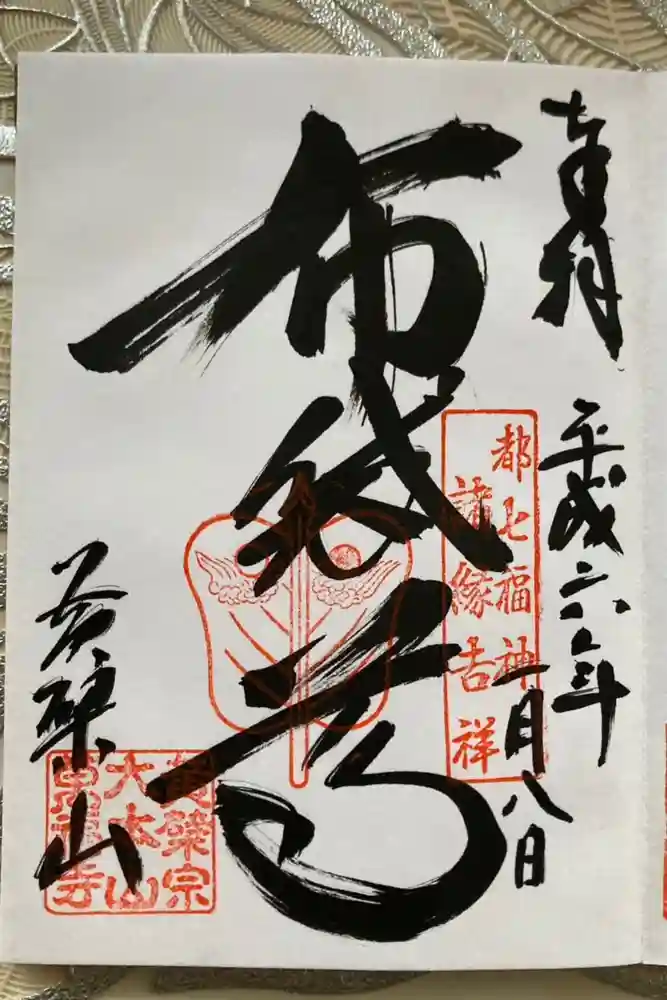 奉拝
平成六年
一月八日
都七福神
諸縁吉祥
布袋尊
黄檗山
黄檗宗
大本山
萬福寺